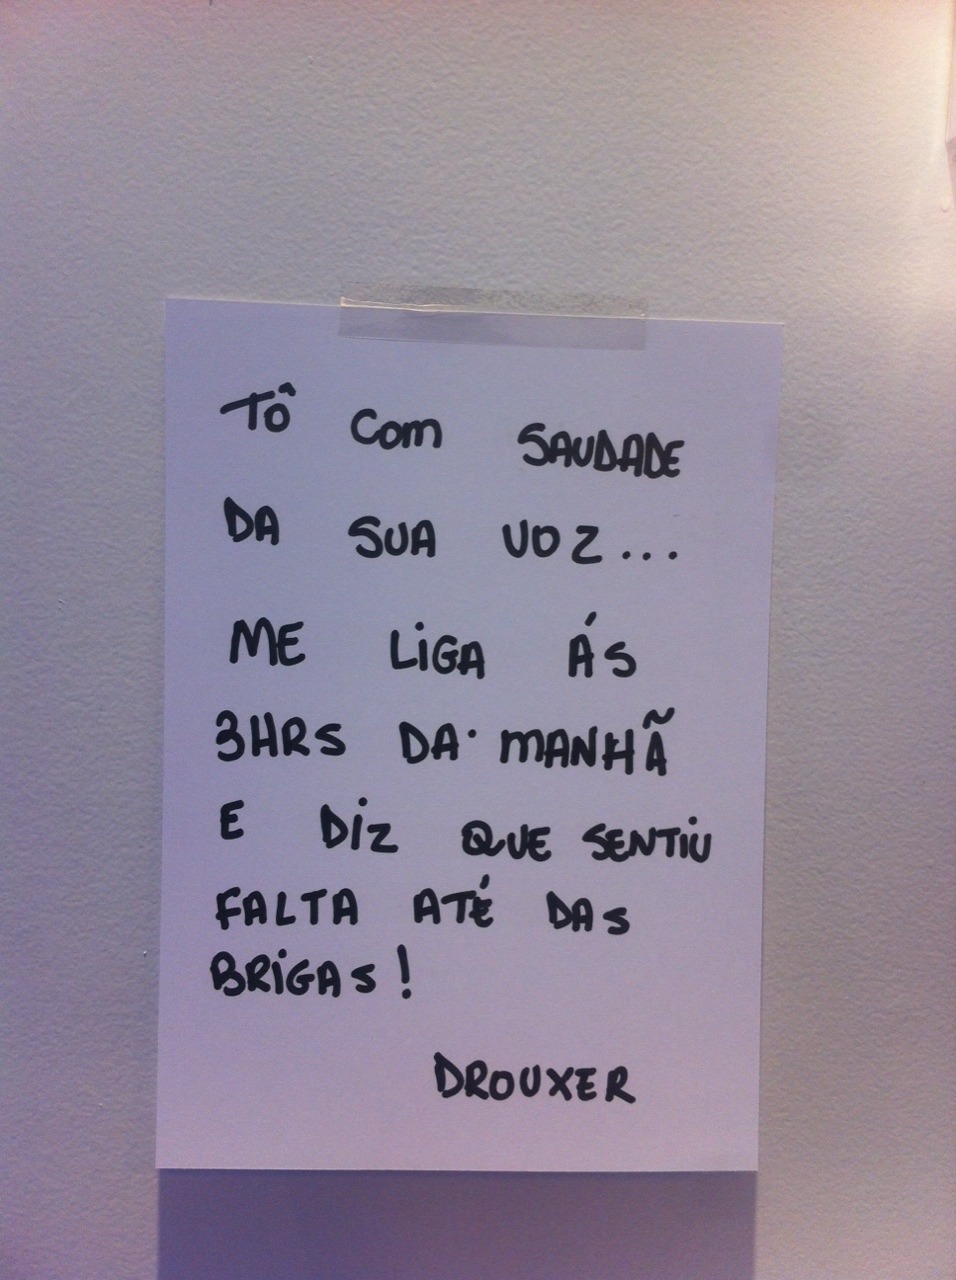 Tô Com SAUDADE
DA SUA VOZ...
ME LiGA ÁS
3HRS DA MANHÃ
E DiZ QUE SENTiU
FALTA ATÉ DAS
BRiGAS!
DROUXER